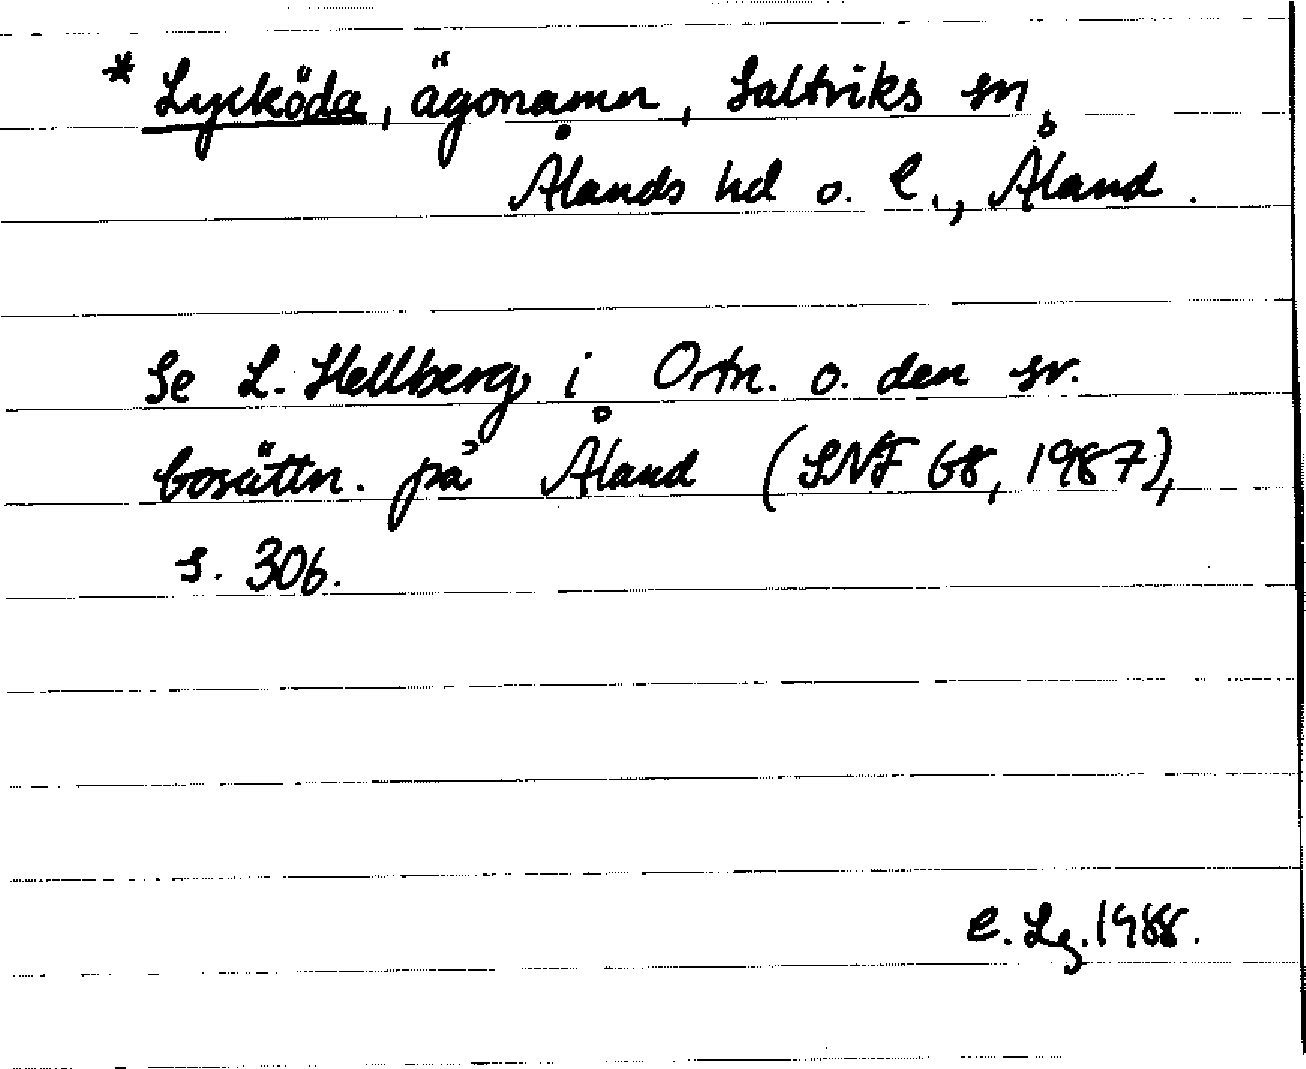 * Lycköda, ägonamn, Saltviks sn,
Ålands hd o. l., Åland.
Se L. Hellberg i Ortn. o. den sv.
bosättn. på Åland (SNF 68, 1987),
s. 306.
e. Lg. 1988.